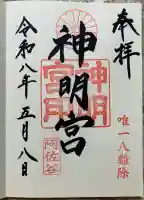 奉拝
唯一八難除
神明宮
神明
宮印
阿佐谷
令和八年五月八日